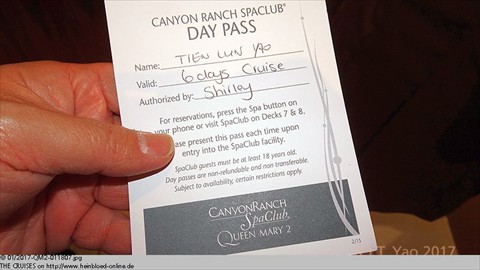 CANYON RANCH SPACLUB®
DAY PASS
Name: TIEN LUN YAO
Valid: 6 days Cruise
Authorized by: Shirley
For reservations, press the Spa button on
your phone or visit SpaClub on Decks 7 & 8.
ease present this pass each time upon
entry into the SpaClub facility.
SpaClub guests must be at least 18 years old.
Day passes are non-refundable and non transferable.
Subject to availability, certain restrictions apply.
CANYONRANCH
SpaClub
QUEEN MARY 2
2/15
T. Yao 2017
© 01/2017-QM2-011807.jpg
THE CRUISES on http://www.heinbloed-online.de